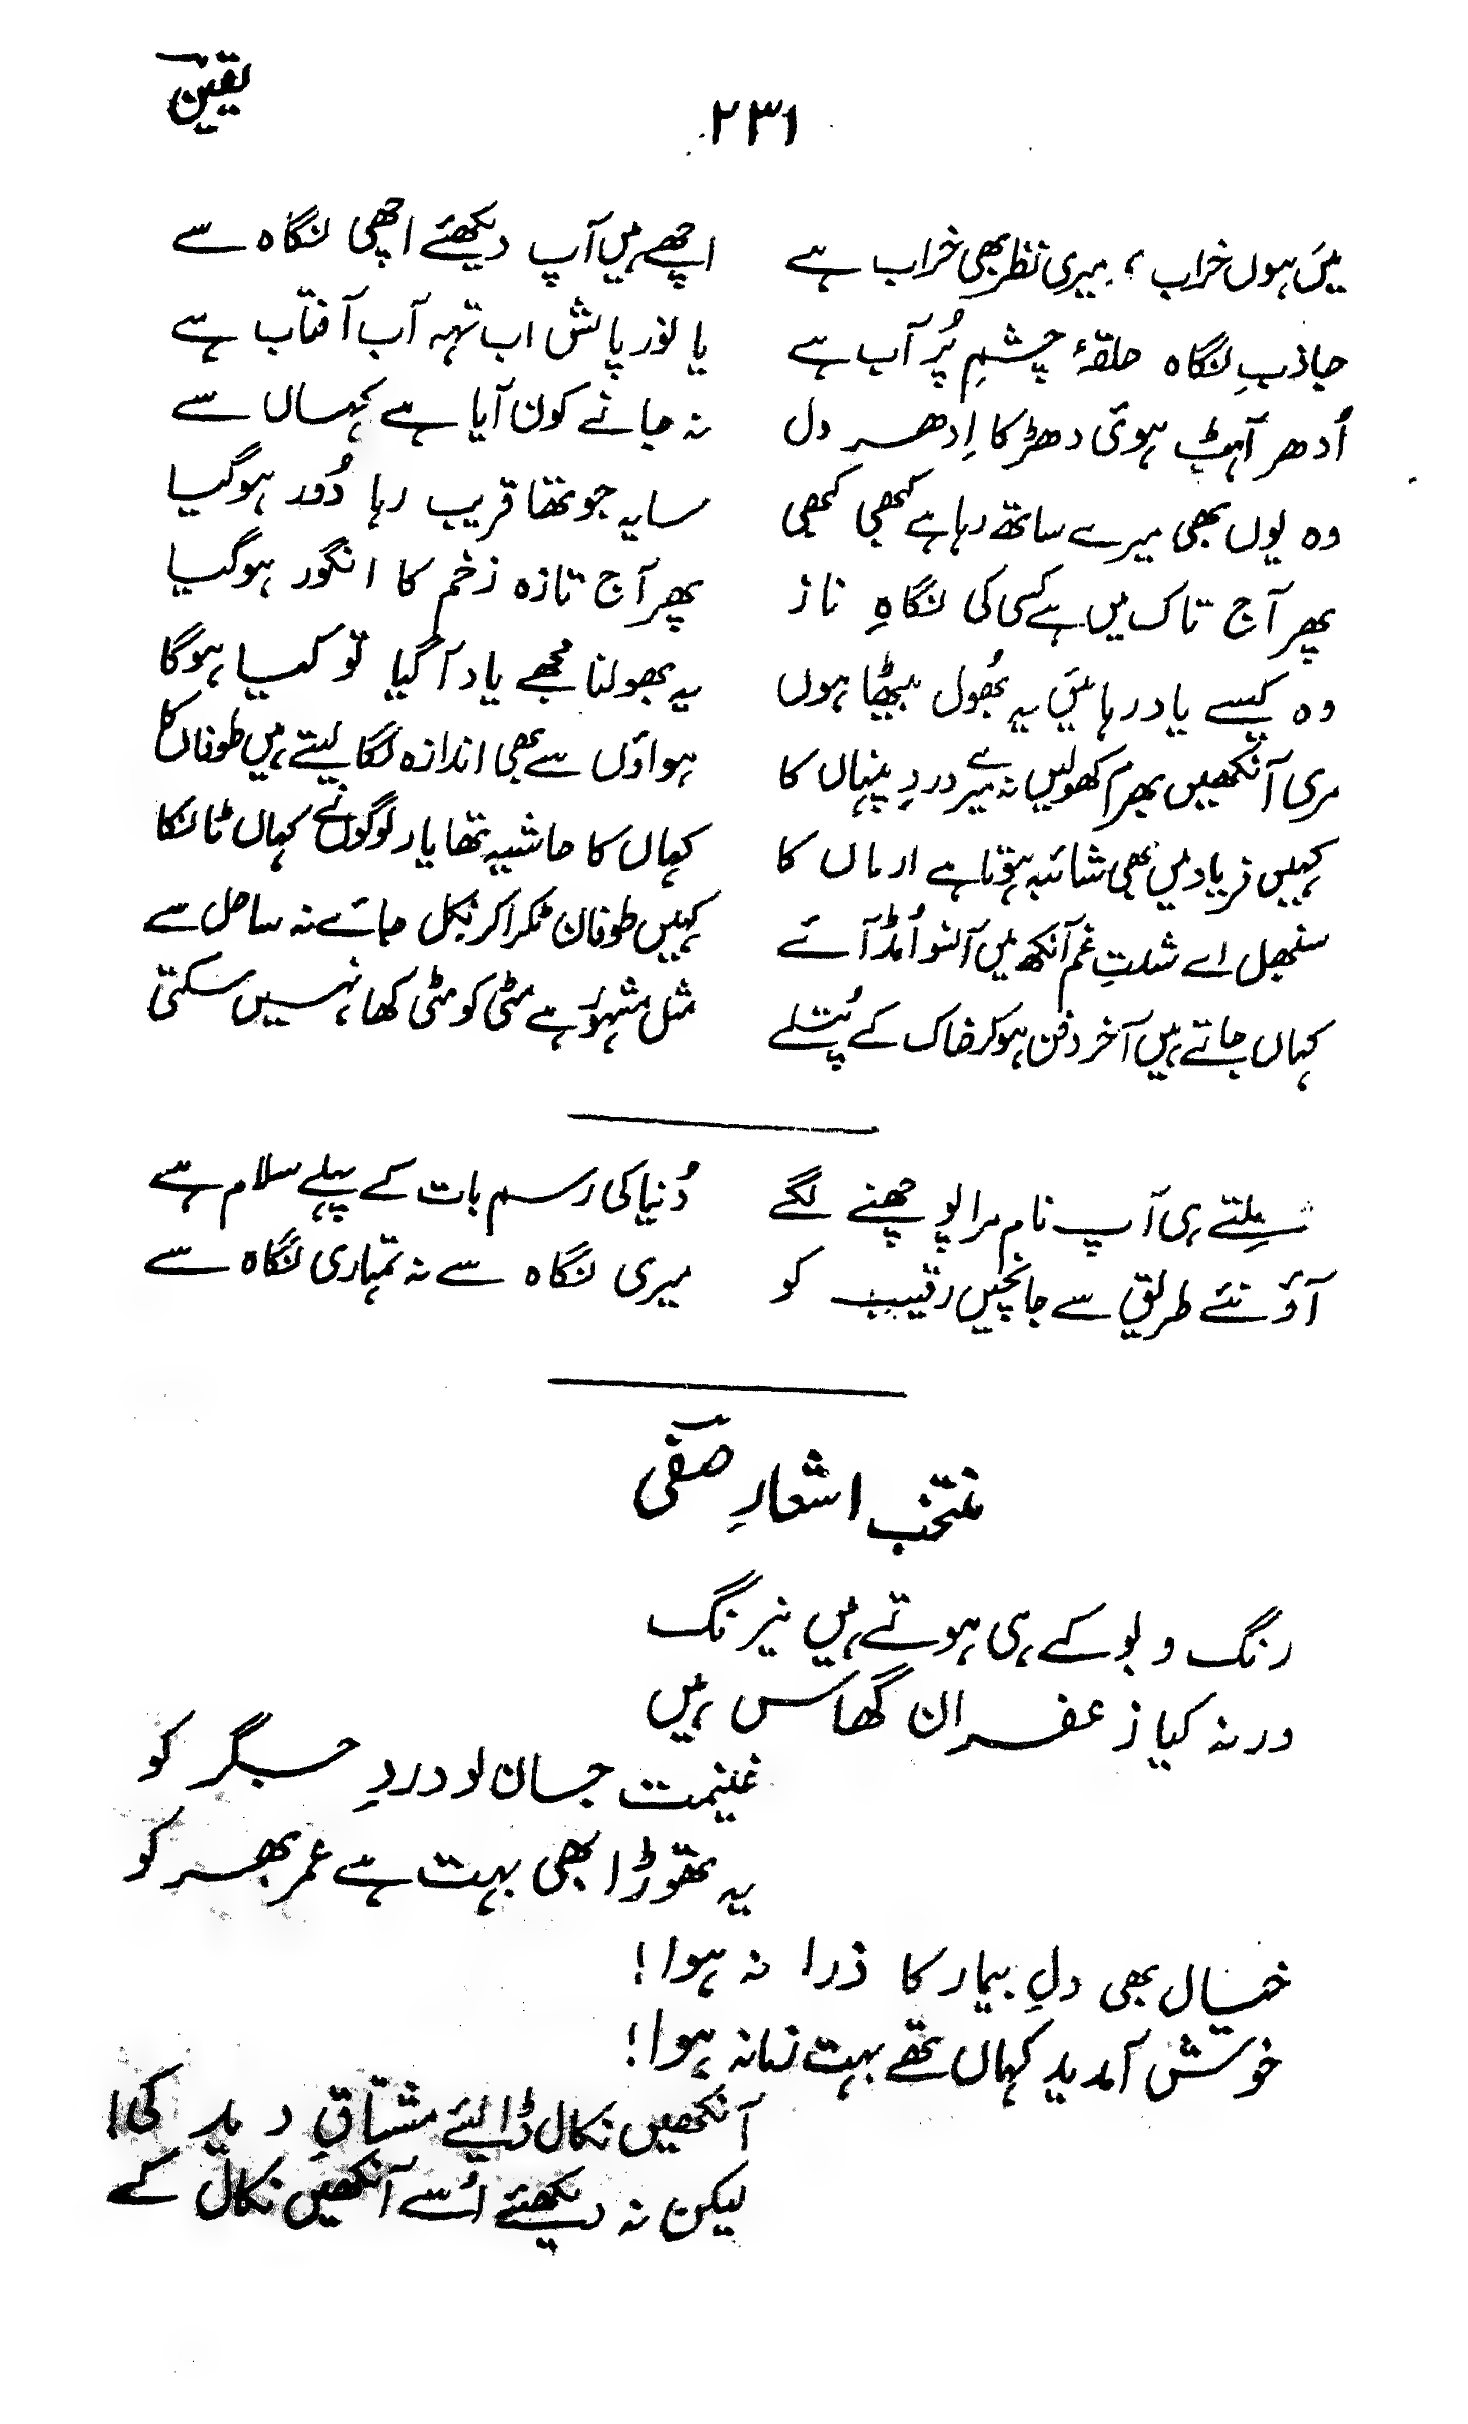 یقینؔ
۲۳۱
میں ہوں خراب، میری نظر بھی خراب ہے اچھے ہیں آپ دیکھئے اچھی نگاہ سے
جاذبِ نگاہ حلقۂ چشمِ پُر آب ہے یا نور پاش اب تہہ آب آفتاب ہے
اُدھر آہٹ ہوئی دھڑکا اِدھر دل نہ جانے کون آیا ہے کہاں سے
وہ یوں بھی میرے ساتھ رہا ہے کبھی کبھی سایہ جو تھا قریب رہا دُور ہوگیا
پھر آج تاک میں ہے کسی کی نگاہِ ناز پھر آج تازہ زخم کا انگور ہوگیا
وہ کیسے یاد رہا میں یہ بھُول بیٹھا ہوں یہ بھولنا مجھے یاد آگیا تو کیا ہوگا
مری آنکھیں بھرم کھولیں نہ میرے دردِ پنہاں کا ہواؤں سے بھی اندازہ لگا لیتے ہیں طوفاں کا
کہیں فریاد میں بھی شائبہ ہوتا ہے ارماں کا کہاں کا حاشیہ تھا یار لوگوں نے کہاں ٹانکا
سنبھل اے شدتِ غم آنکھ میں آنسو اُمڈ آئے کہیں طوفان ٹکرا کر نکل جائے نہ ساحل سے
کہاں جاتے ہیں آخر دفن ہوکر خاک کے پُتلے مثل مشہور ہے مٹی کو مٹی کھا نہیں سکتی
ملتے ہی آپ نام مرا پوچھنے لگے دُنیا کی رسم بات کے پہلے سلام ہے
آؤ نئے طریق سے جانچیں رقیب کو میری نگاہ سے نہ تمہاری نگاہ سے
منتخب اشعارِ صفیؔ
رنگ و بو کے ہی ہوتے ہیں نیرنگ
ورنہ کیا زعفران گھاس نہیں
غنیمت جان لو دردِ جگر کو
یہ تھوڑا بھی بہت ہے عمر بھر کو
خیال بھی دلِ بیمار کا ذرا نہ ہوا!
خوش آمدید کہاں تھے بہت زمانہ ہوا!
آنکھیں نکال ڈالیئے مشتاقِ دید کی!
لیکن نہ دیکھئے اُسے آنکھیں نکال کے